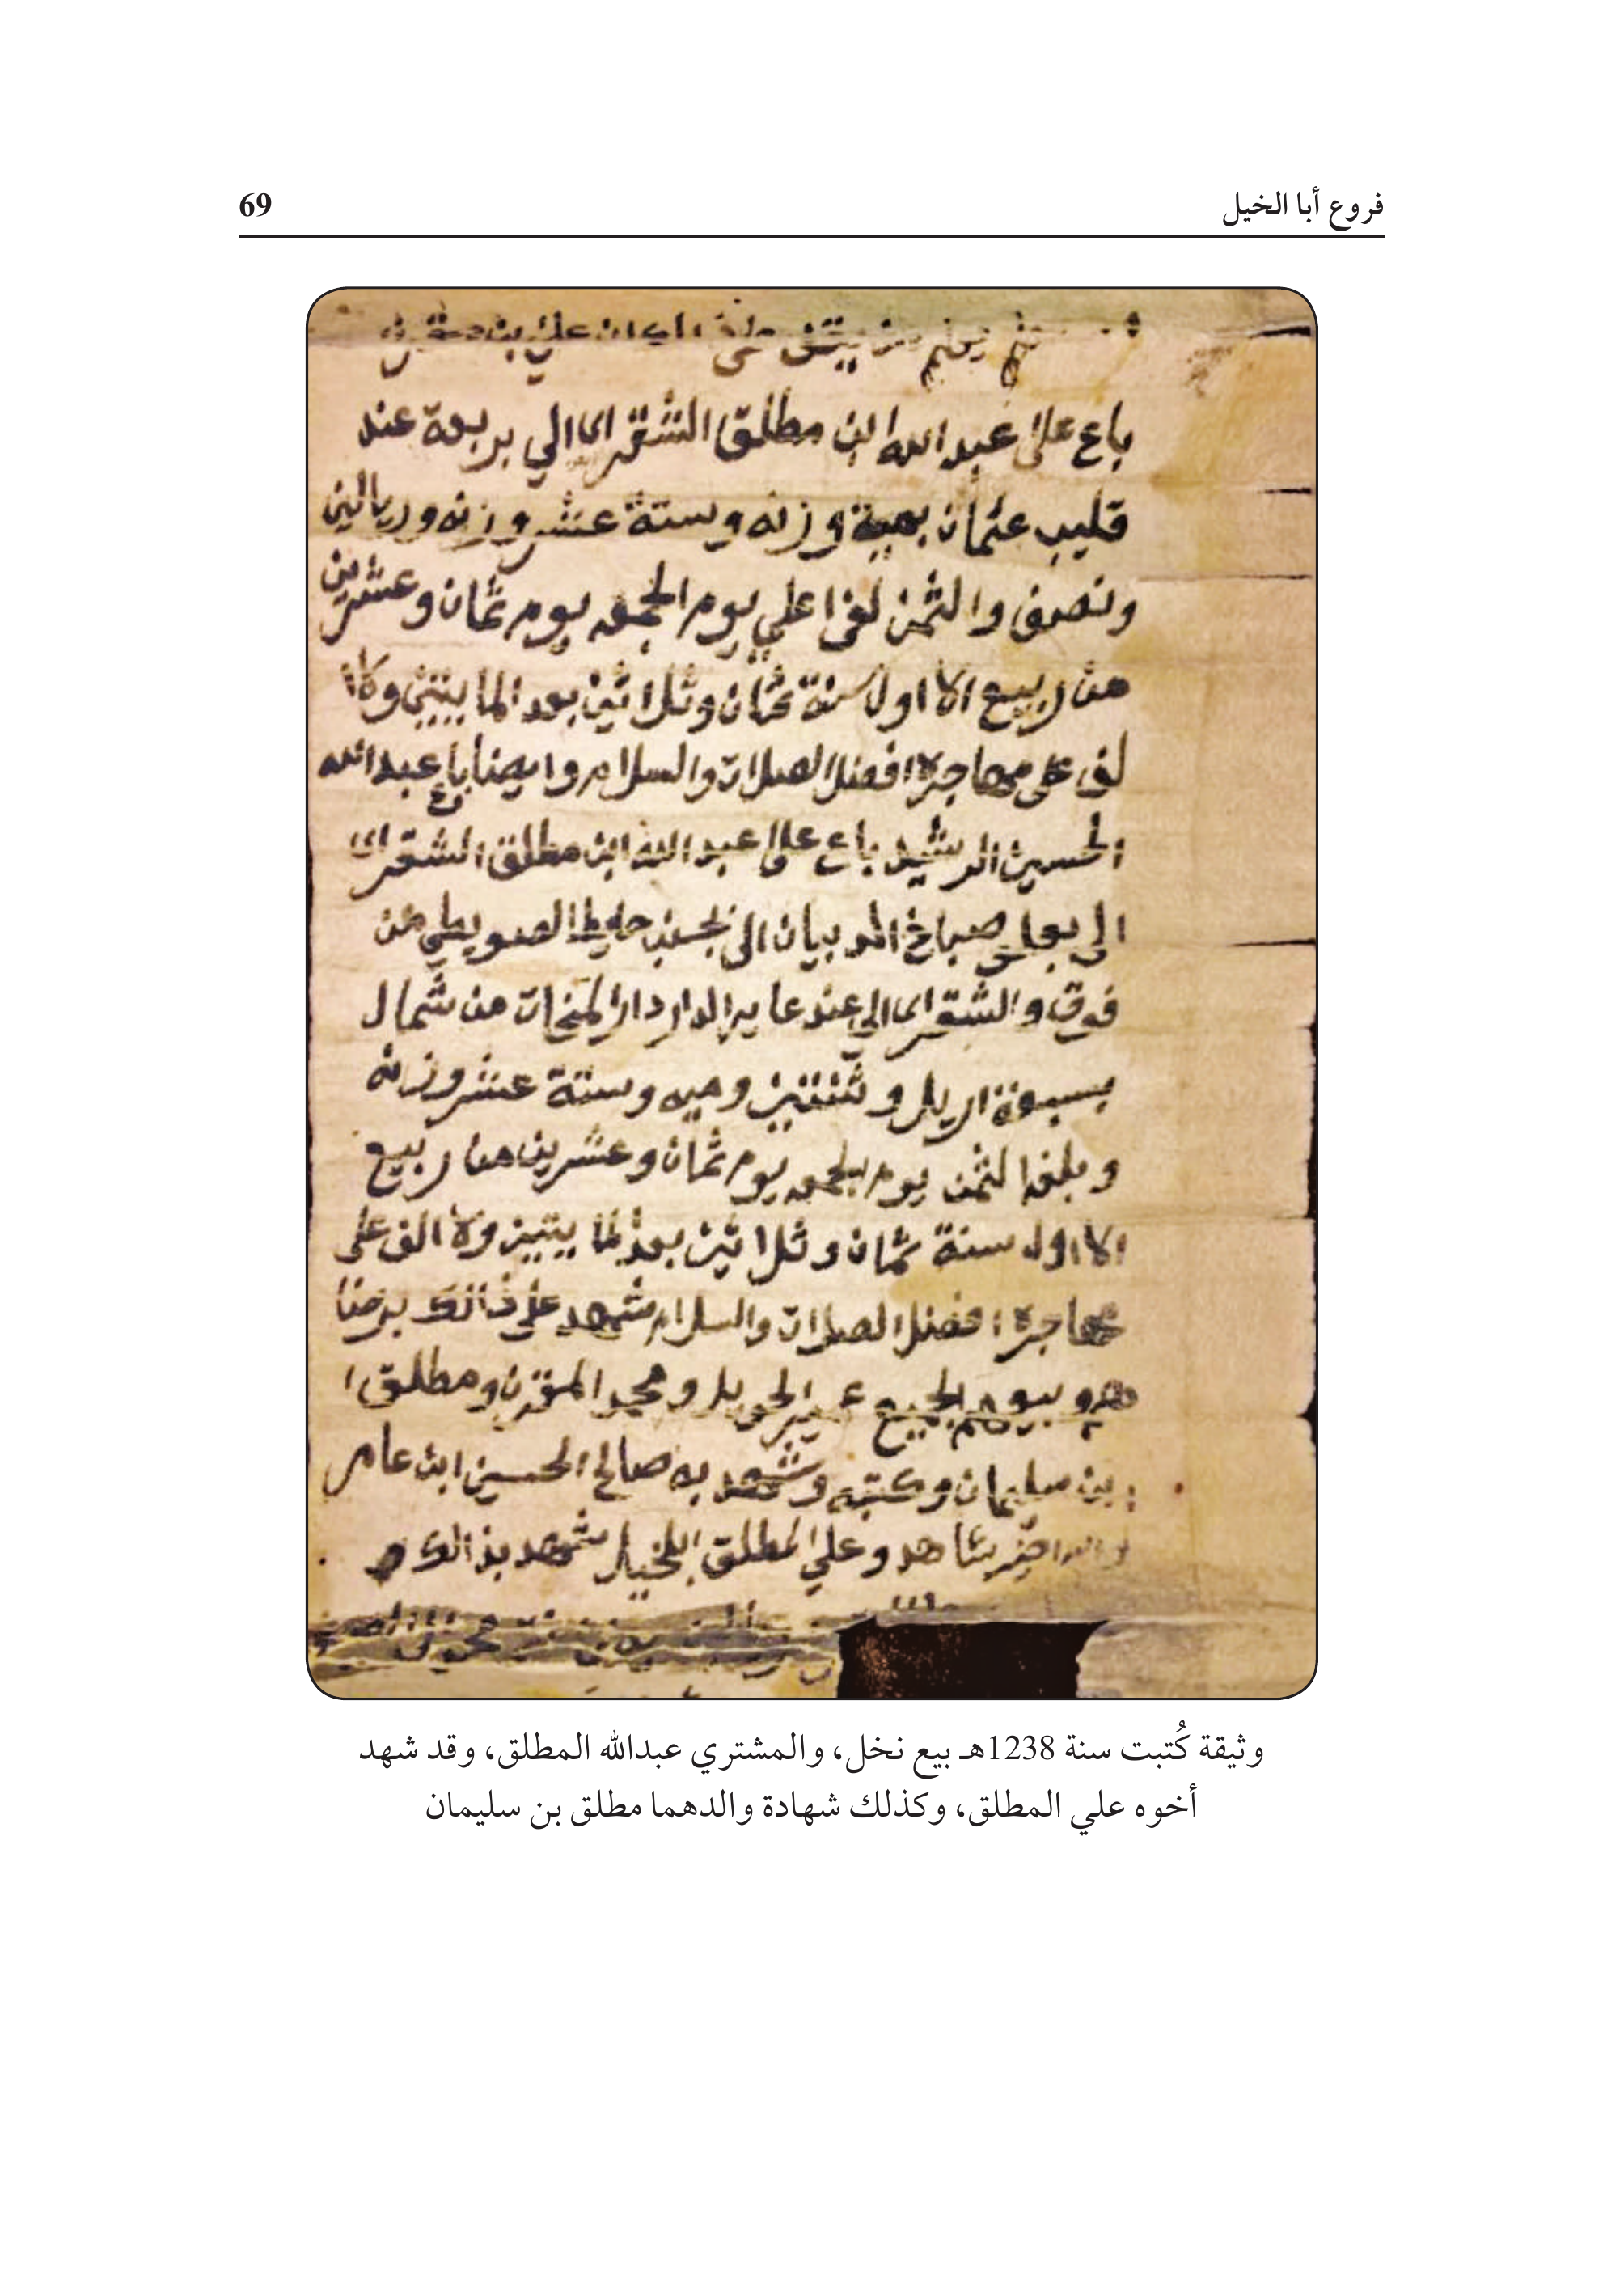 فروع أبا الخيل
69
باع علي عبدالله ابن مطلق الشقراى الي بربعة عند
قليب عثمان بمية وزنه وستة عشر وزنه وريالين
ونصف والثمن لفا علي يوم الجمعه يوم ثمان وعشرين
من ربيع الا اول سنة ثمان وثلاثين بعد المايتين وكا
لف على مهاجره افضل الصلات والسلام وايضا باع عبدالله
الحسين الرشيد باع على عبدالله ابن مطلق الشقراى
الي صباخ المد بيان الى بجنب حايط الصويطي من
فوق والشقراى الي عند عاير الدار دار من شمال
بسبعة اريل وثنتين وميه وستة عشر وزنه
وبلغه الثمن يوم الجمعه يوم ثمان وعشرين من ربيع
الا اول سنة ثمان وثلاثين بعد المايتين والالف على
مهاجره افضل الصلات والسلام شهد على ذالك برضا
هم الجميع ومحمد المقرن ومطلق ا
بن سليمان وكتبه وشهد به صالح الحسين ابن عامر
شاهد وعلي المطلق ابالخيل شهد بذالك
وثيقة كُتبت سنة 1238هـ بيع نخل، والمشتري عبدالله المطلق، وقد شهد
أخوه علي المطلق، وكذلك شهادة والدهما مطلق بن سليمان